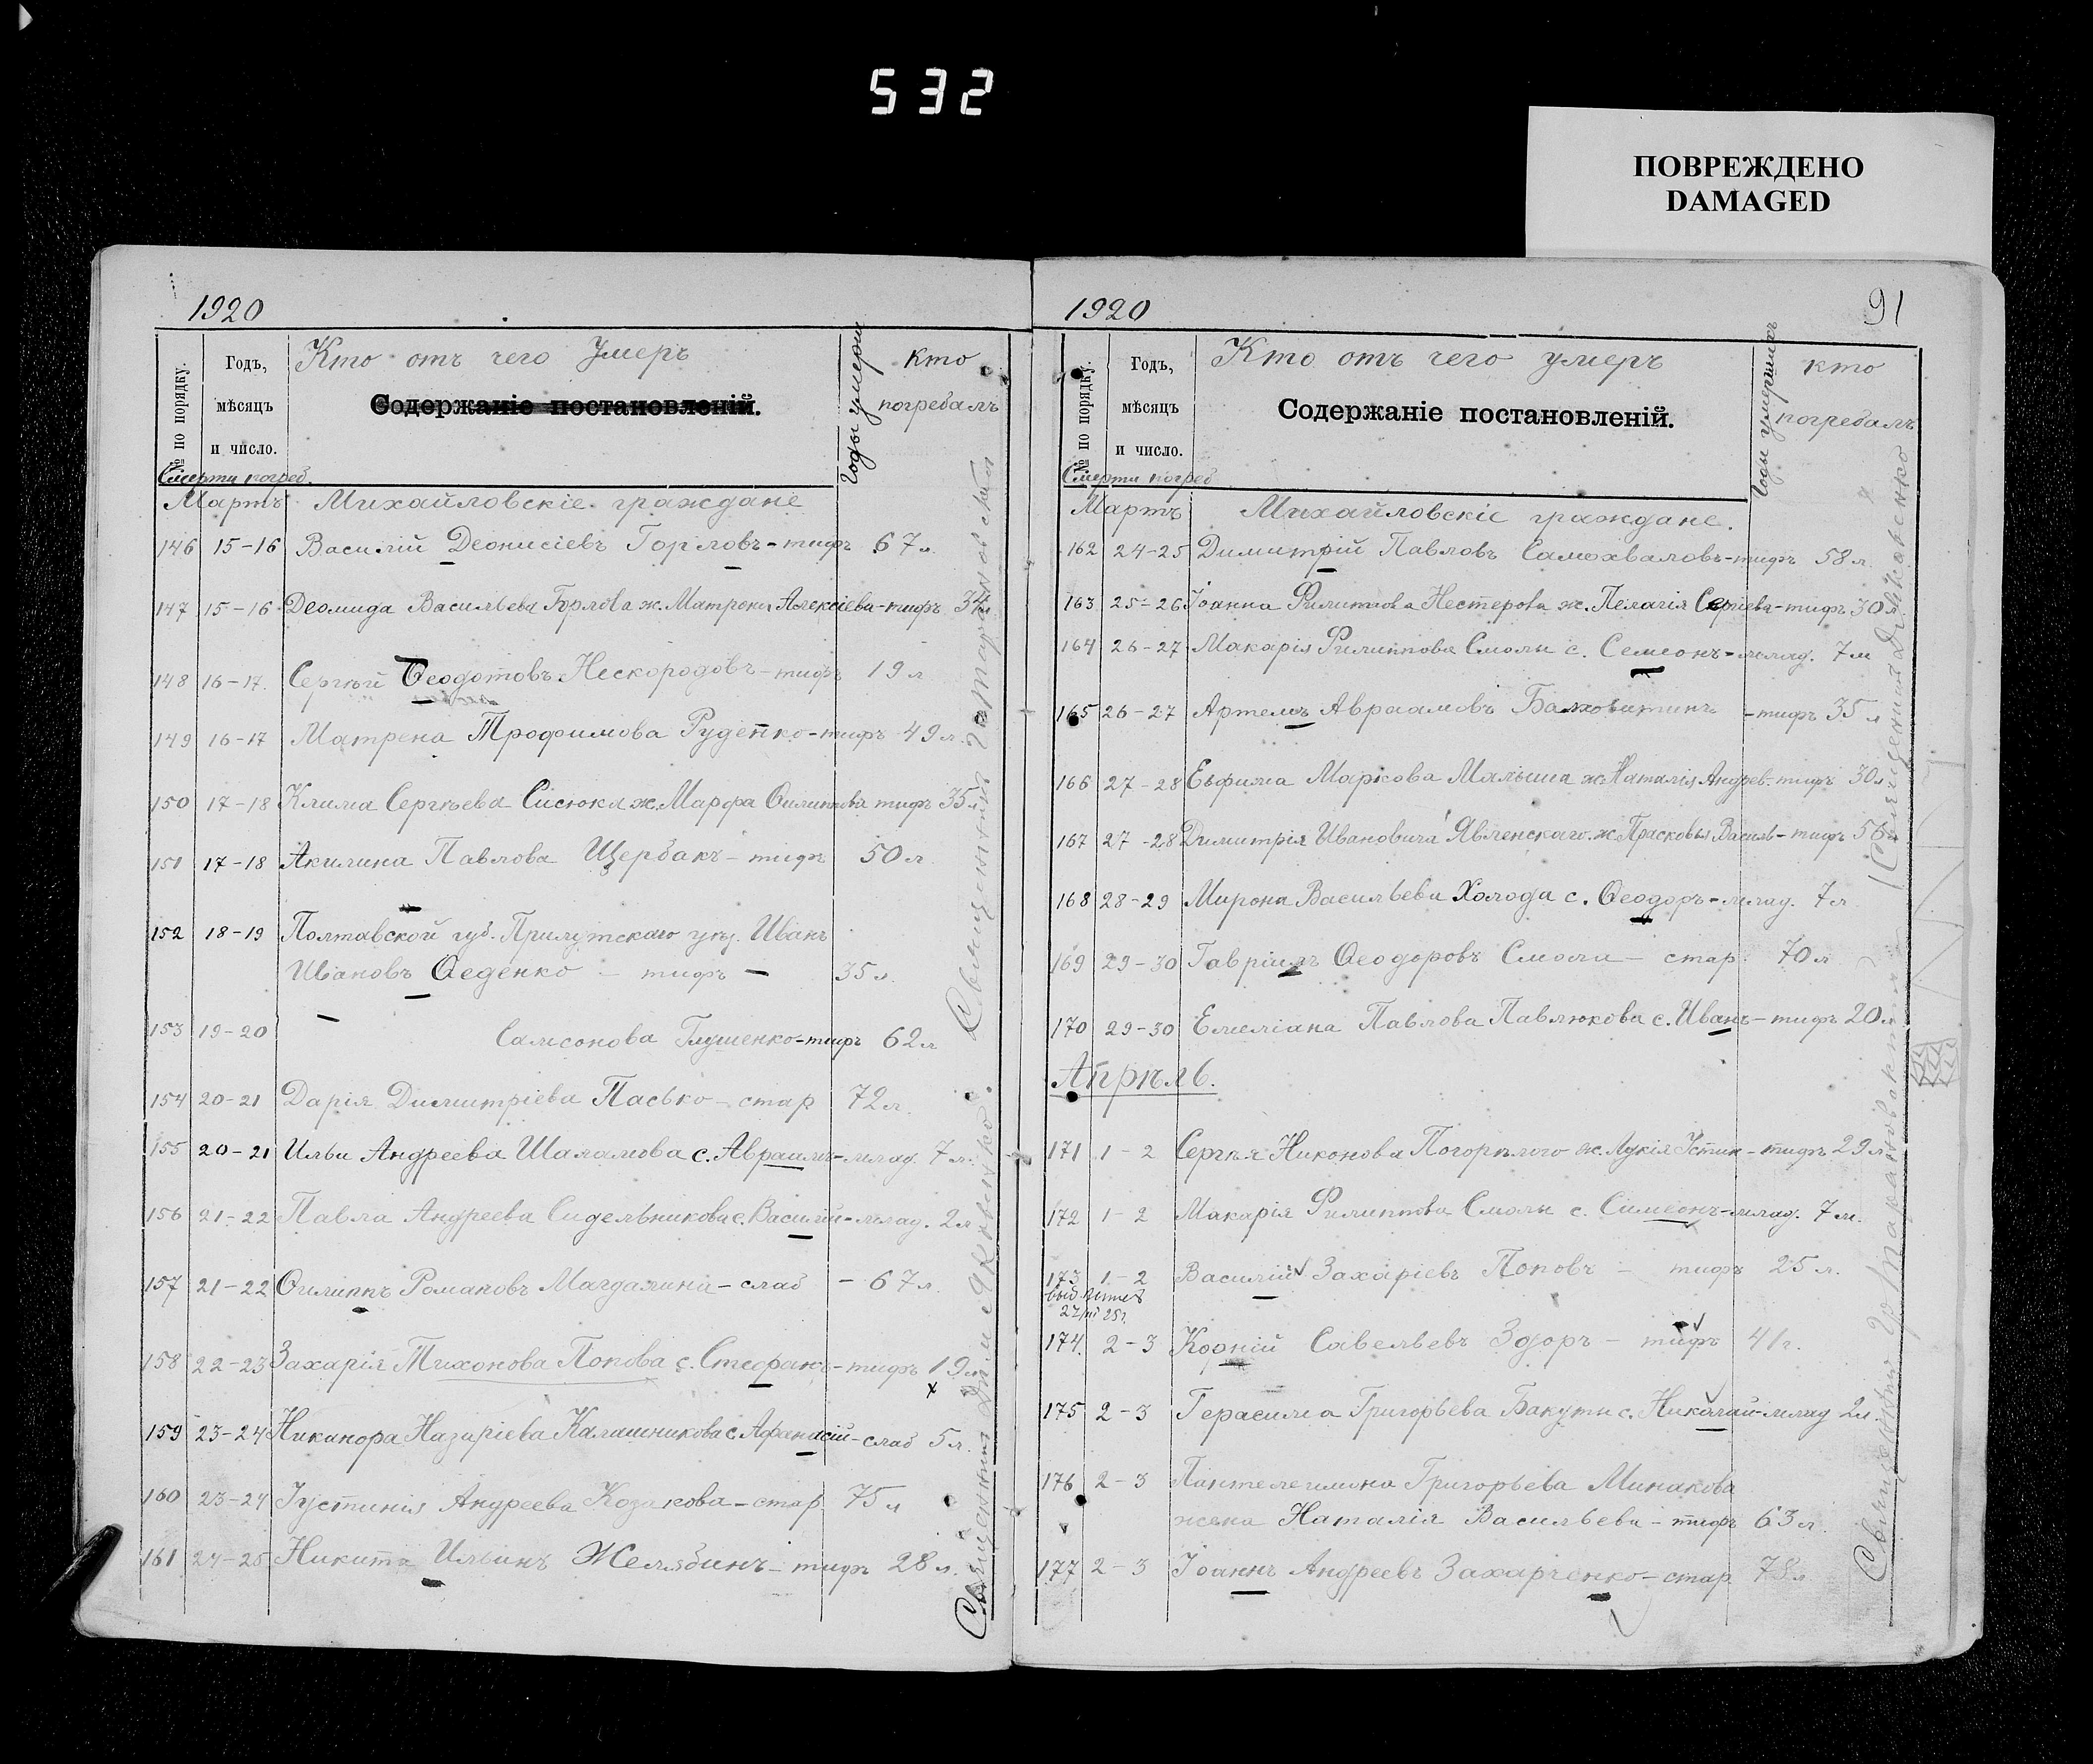 532
ПОВРЕЖДЕНО
DAMAGED
1920
№ по порядку.
Годъ, мѣсяцъ и число.
Кто отъ чего Умеръ
Содержаніе постановленій.
Годы умерш
кто погребалъ
Смерти погреб.
Мартъ Михайловскіе граждане
146 15-16 Василій Деонисіевъ Горловъ - тифъ 67 л.
147 15-16 Деомида Васильева Горлова ж. Матрона Алексіева - тифъ
148 16-17. Сергѣй Ѳеодотовъ Нескородовъ - тифъ 19 л
149 16-17 Матрена Трофимова Руденко - тифъ 49 л.
150 17-18 Клима Сергѣева Сисюка ж. Марфа Филиппова тифъ 35 л
151 17-18 Акилина Павлова Щербакъ - тифъ 50 л.
152 18-19 Полтавской губ. Прилутскаго уѣз. Иванъ
Ивановъ Ѳеденко - тифъ - 35 л.
153 19-20 Самсонова Глушенко - тифъ 62 л
154 20-21 Дарія Димитріева Пасько - стар 72 л.
155 20-21 Ильи Андреева Шаламова с. Авраамъ - млад. 7 м.
156 21-22 Павла Андреева Сидельникова с. Василій - млад. 2 л
157 21-22 Ѳилиппъ Романовъ Магдалина - слаб - 67 л.
158 22-23 Захарія Тихонова Попова с. Стефанъ - тифъ 19 л
159 23-24 Никанора Назаріева Калашникова с. Афанасій - слаб 5 л.
160 23-24 Іустинія Андреева Козакова - стар. 75 л
161 24-25 Никита Ильинъ Желябинъ - тифъ 28 л.
Священникъ Дим Яковенко.
Священникъ
1920
91
№ по порядку.
Годъ, мѣсяцъ и число.
Кто отъ чего умеръ
Содержаніе постановленій.
Годы умершихъ
кто погребалъ
Смерти погреб
Мартъ Михайловскіе граждане.
162 24-25 Димитрій Павловъ Самохваловъ - тифъ 58 л.
163 25-26 Іоанна Филиппова Нестерова ж. Пелагія Сергіева - тифъ 30 л
164 26-27 Макарія Филиппова Смолы с. Семеонъ - млад. 7 м
165 26-27 Артемъ Авраамовъ - тифъ 35 л
166 27-28 Евфима Маркова Малыша ж. Наталія Андрев - тифъ 30 л
167 27-28 Димитрія Ивановича Явленскаго ж. Прасковья Василь - тифъ 56
168 28-29 Мирона Васильева Холода с. Ѳеодоръ - млад. 7 л.
169 29-30 Гавріилъ Ѳеодоровъ Смолы - стар. 70 л
170 29-30 Емеліана Павлова Павлюкова с. Иванъ - тифъ 20 л
Апрѣль.
171 1-2 Сергѣя Никонова Погорѣлого ж. Лукія Устин - тифъ 29 л
172 1-2 Макарія Филиппова Смолы с. Симеонъ - млад. 7 м.
173 1-2 Василій Захаріевъ Поповъ - тифъ 25 л.
174. 2-3 Корній Савельевъ Зоръ - тифъ 41 г.
175 2-3 Герасима Григорьева Бакуты с. Николай - млад 2 м
176 2-3 Пантелеимона Григорьева Минакова
жена Наталія Васильева - тифъ 63 л.
177 2-3 Іоаннъ Андреевъ Захарченко - стар 78 л
Священникъ
Священникъ Д. Яковенко